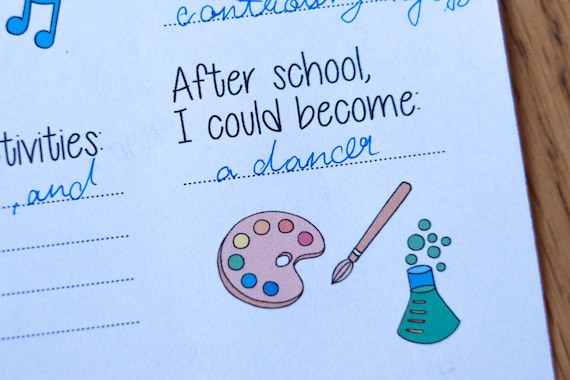 After school,
I could become:
a dancer
tivities:
, and